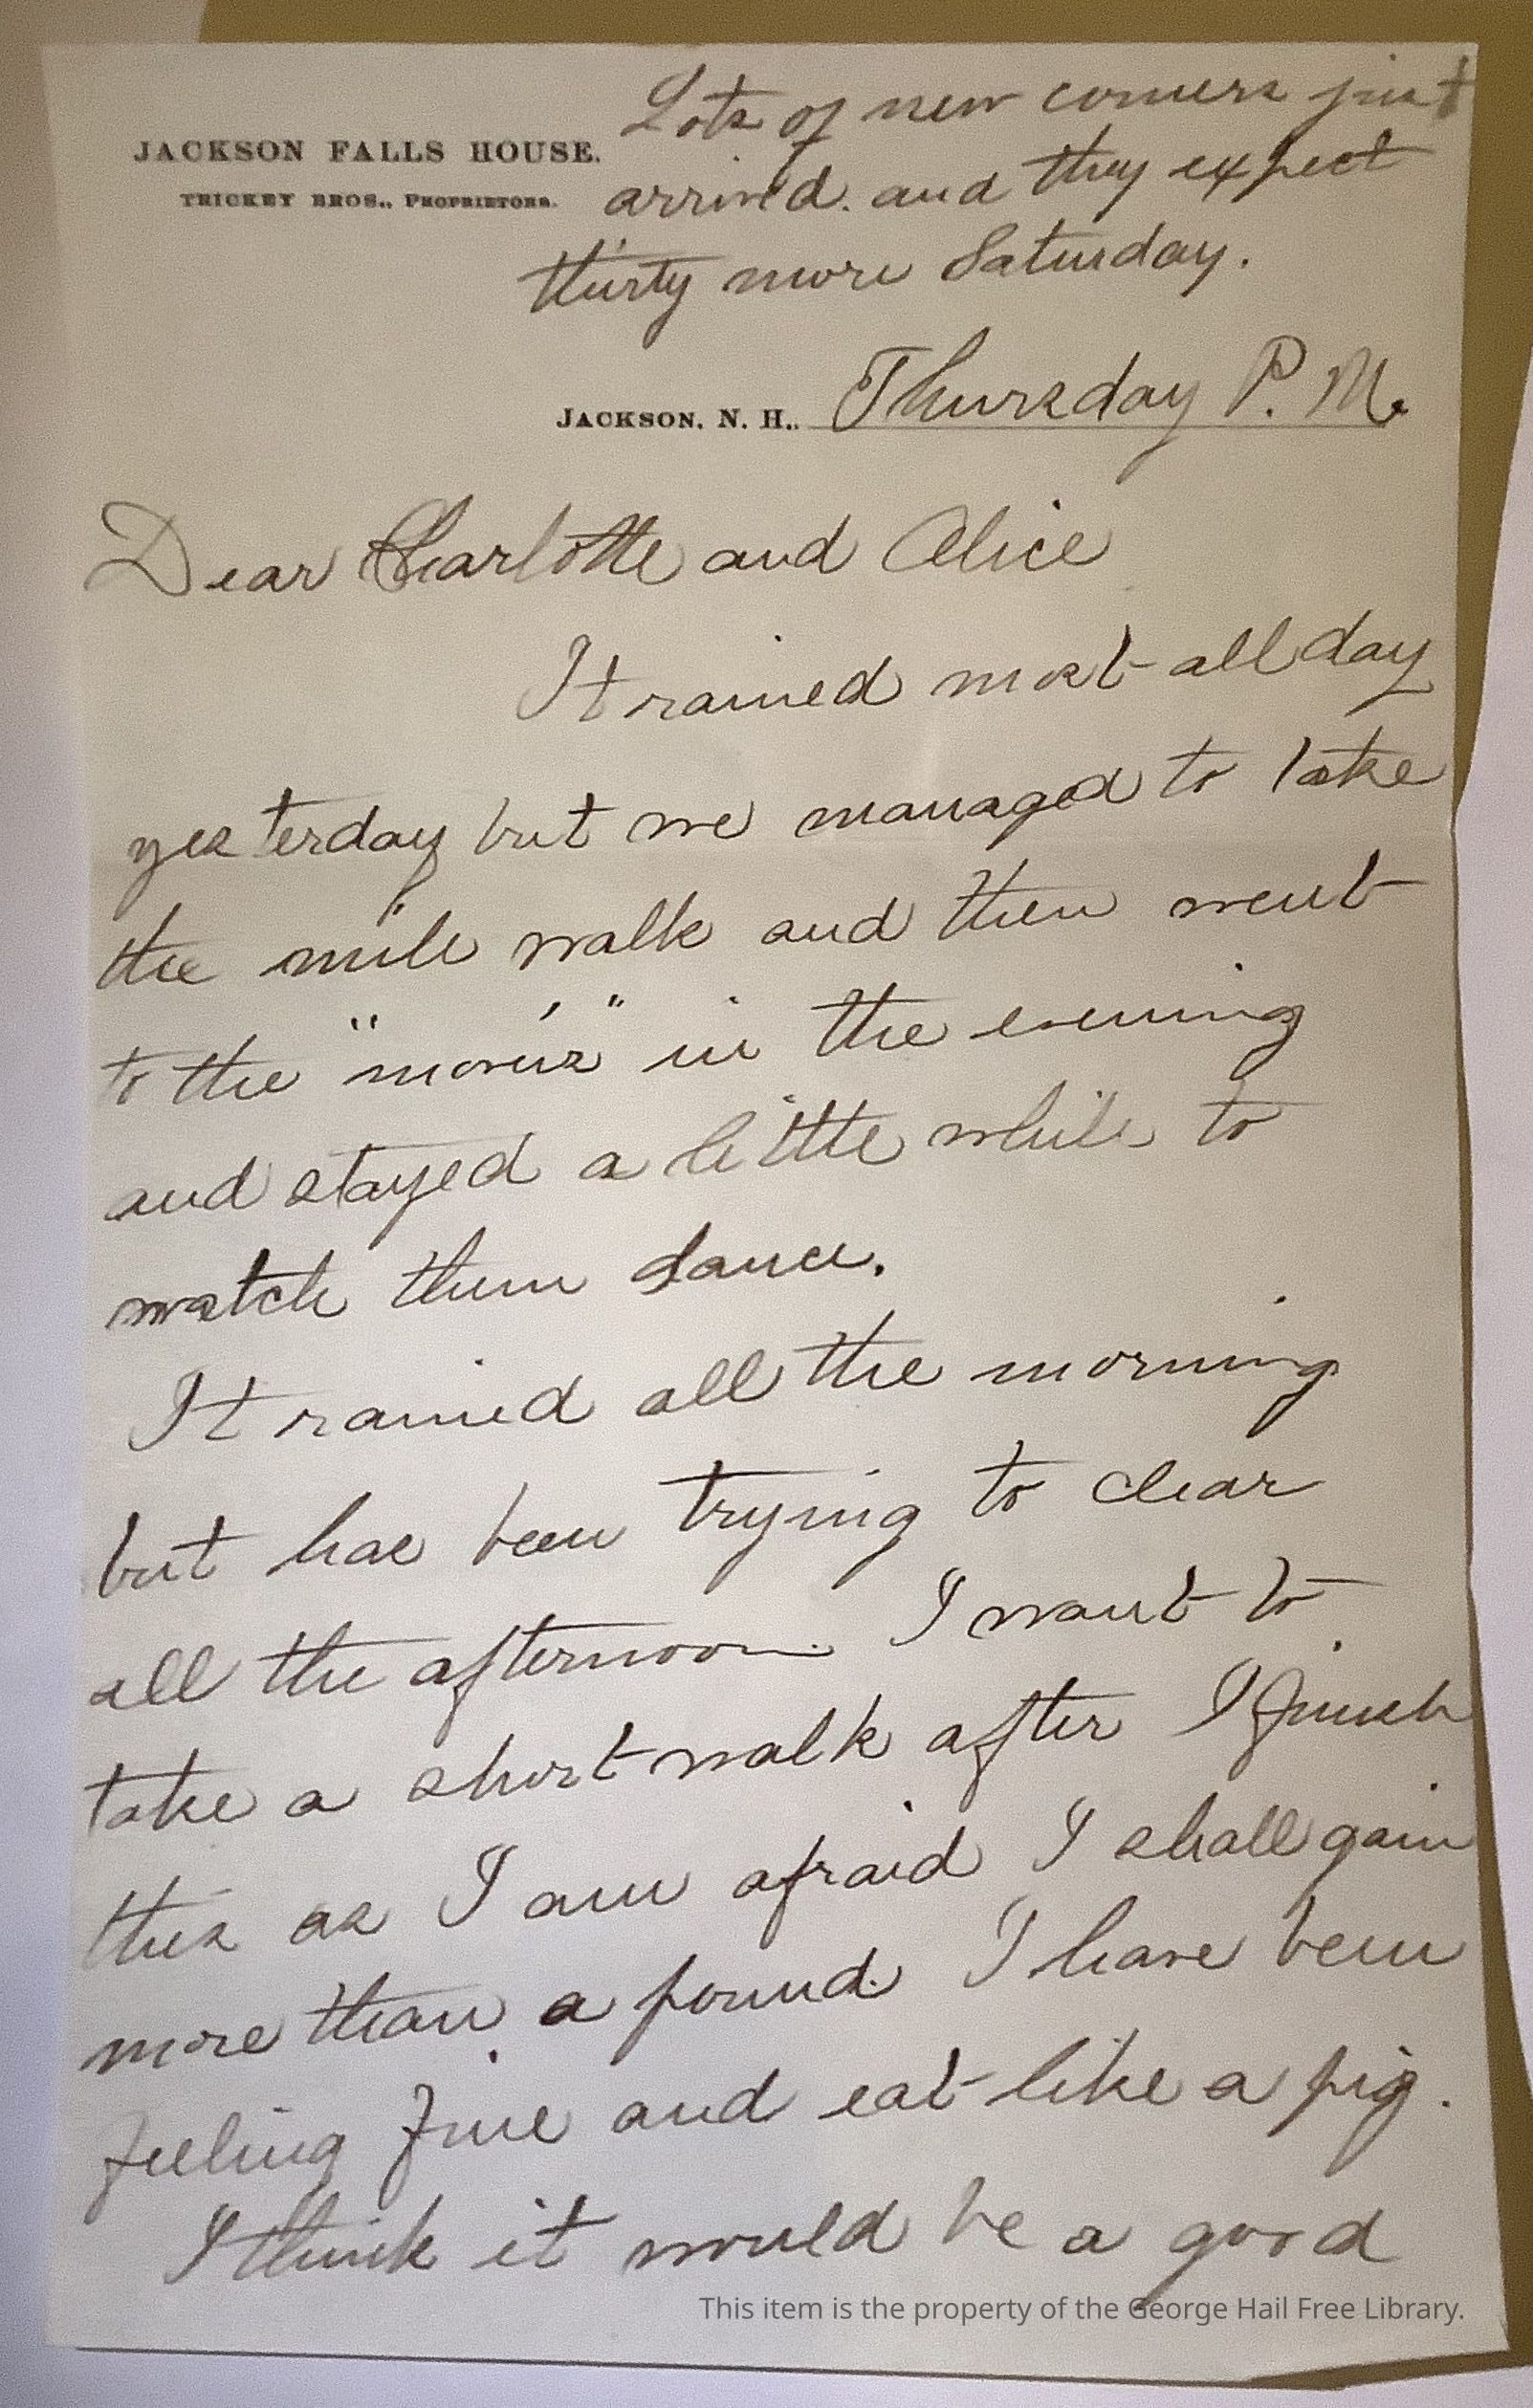 Lots of new comers just
JACKSON FALLS HOUSE.
arrived. and they expect
TRICKEY BROS., PROPRIETORS.
thirty more Saturday.
JACKSON, N. H., Thursday P. M.
Dear Charlotte and Alice
It rained most all day
yesterday but we managed to take
the mile walk and then went
to the "movies" in the evening
and stayed a little while to
watch them dance.
It rained all the morning
but has been trying to clear
all the afternoon. I want to
take a short walk after I finish
this as I am afraid I shall gain
more than a pound. I have been
feeling fine and eat like a pig.
I think it would be a good
This item is the property of the George Hail Free Library.